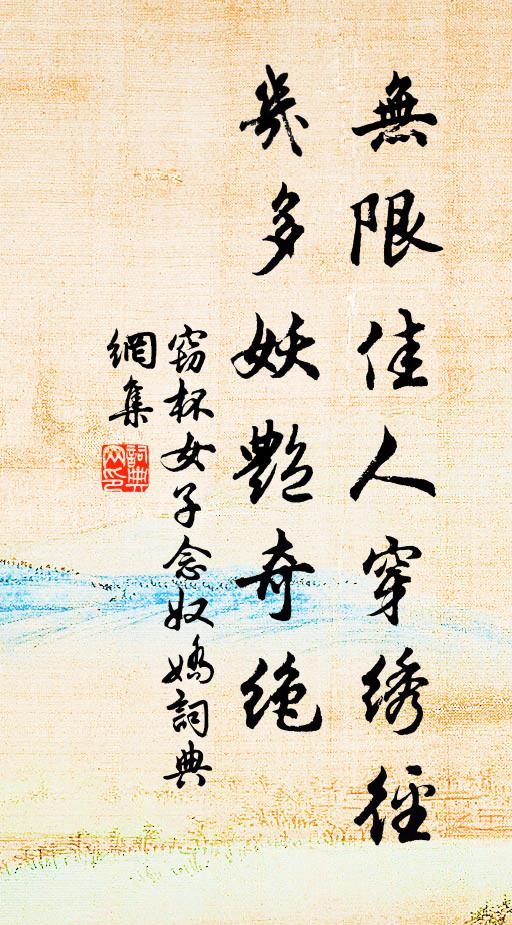 無限佳人穿绣徑
幾多妖艷奇絶
窃杯女子念奴嬌詞典
網集
詞典
网印